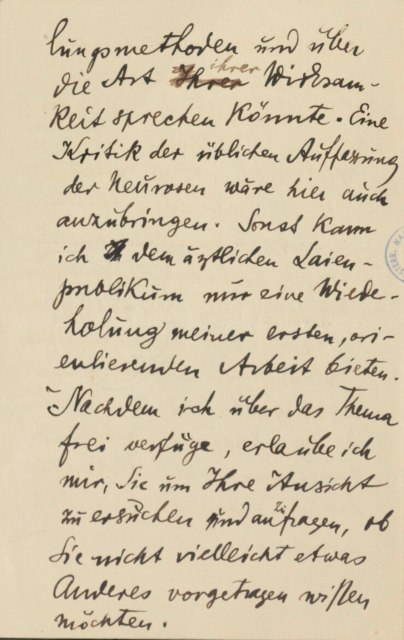 lungsmethoden und über
die Art Ihrer ihrer Wirksam-
keit sprechen könnte. Eine
Kritik der üblichen Auffassung
der Neurosen wäre hier auch
anzubringen. Sonst kann
ich dem ärztlichen Laien-
publikum nur eine Wieder-
holung meiner ersten, ori-
entierenden Arbeit bieten.
Nachdem ich über das Thema
frei verfüge, erlaube ich
mir, Sie um Ihre Ansicht
zu ersuchen und anzufragen, ob
Sie nicht vielleicht etwas
Anderes vorgetragen wissen
möchten.